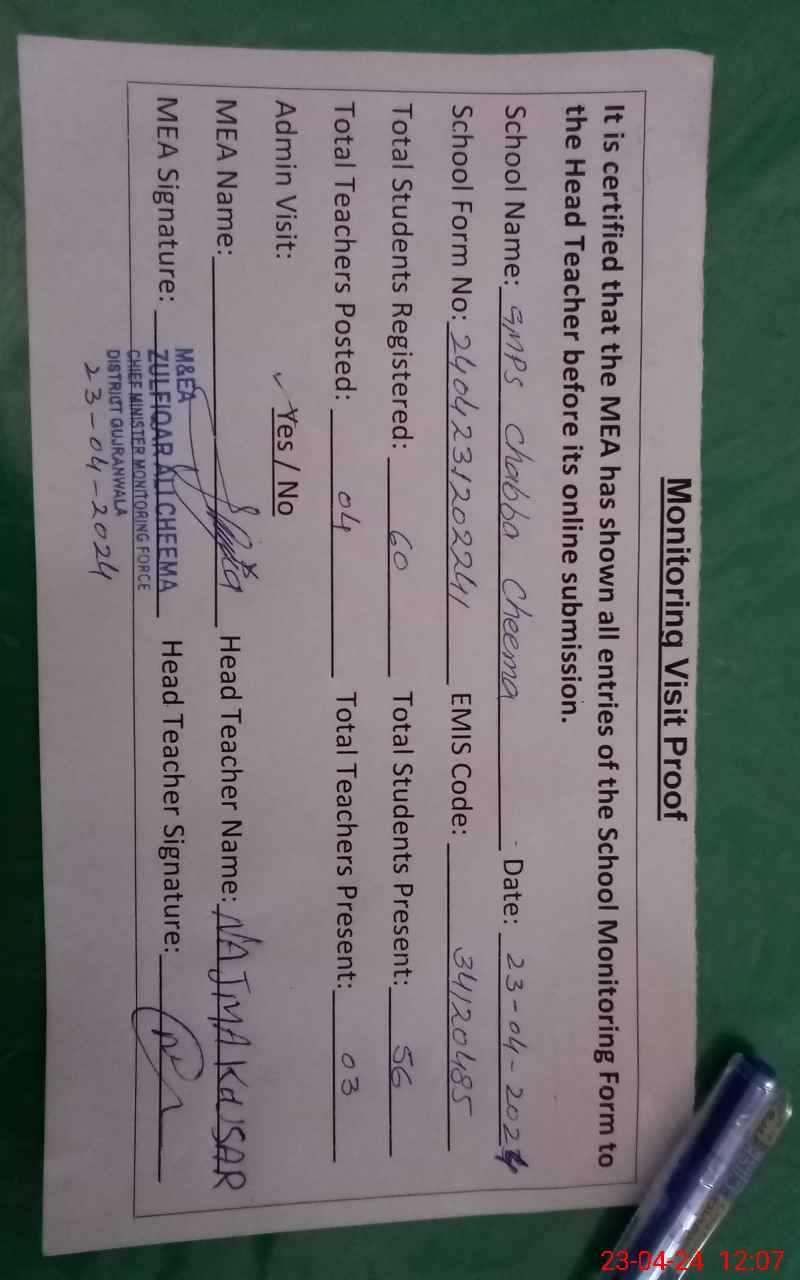 Monitoring Visit Proof
It is certified that the MEA has shown all entries of the School Monitoring Form to
the Head Teacher before its online submission.
School Name: GMPS Chabba Cheema Date: 23-04-2024
School Form No: 2404231202241 EMIS Code: 34120485
Total Students Registered: 60 Total Students Present: 56
Total Teachers Posted: 04 Total Teachers Present: 03
Admin Visit: ✓ Yes / No
MEA Name: Head Teacher Name: NAJMA KAUSAR
MEA Signature: Head Teacher Signature:
M&EA
ZULFIQAR ALI CHEEMA
CHIEF MINISTER MONITORING FORCE
DISTRICT GUJRANWALA
23-04-2024
23-04-24 12:07